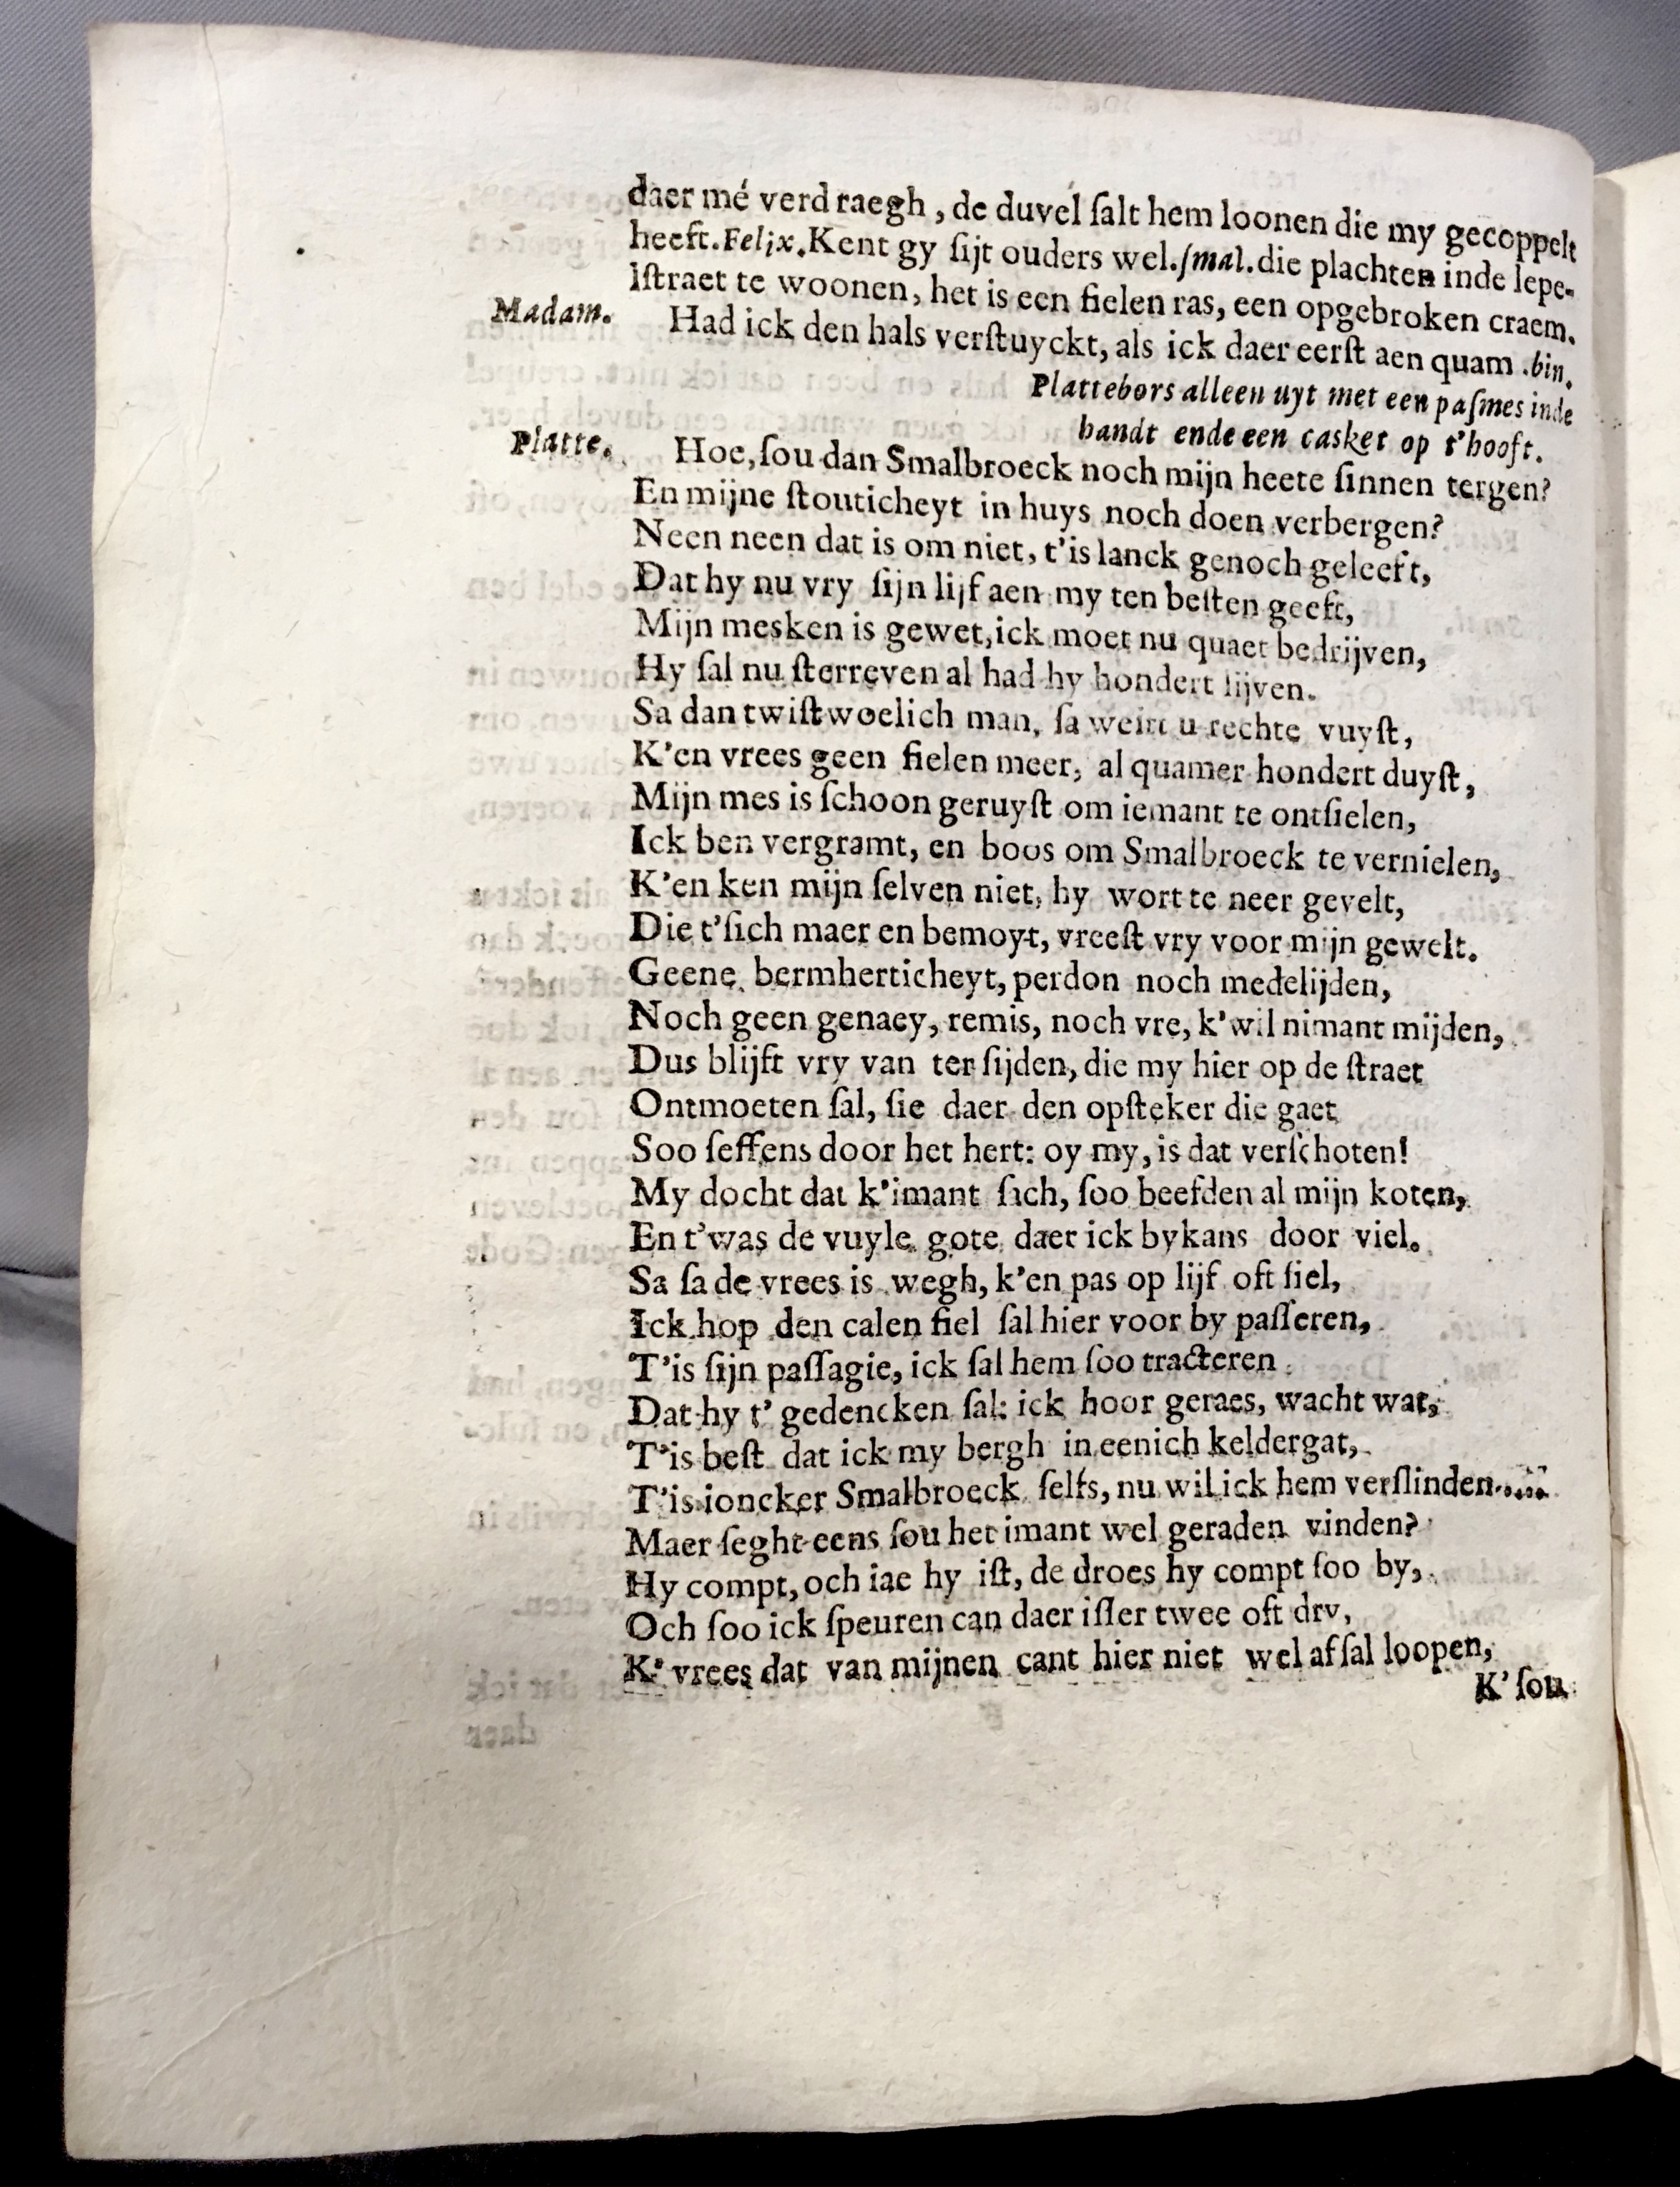 daer mé verdraegh, de duvel ſalt hem loonen die my gecoppelt
heeft. Felix. Kent gy ſijt ouders wel. ſmal. die plachten inde lepe-
lſtraet te woonen, het is een fielen ras, een opgebroken craem.
Madam. Had ick den hals verſtuyckt, als ick daer eerſt aen quam .bin.
Plattebors alleen uyt met een paſmes inde
handt ende een casket op t'hooft.
Platte. Hoe, ſou dan Smalbroeck noch mijn heete ſinnen tergen?
En mijne ſtouticheyt in huys noch doen verbergen?
Neen neen dat is om niet, t'is lanck genoch geleeft,
Dat hy nu vry ſijn lijf aen my ten beſten geeft,
Mijn mesken is gewet, ick moet nu quaet bedrijven,
Hy ſal nu ſterreven al had hy hondert lijven.
Sa dan twiſtwoelich man, ſa weirt u rechte vuyſt,
K'en vrees geen fielen meer, al quamer hondert duyſt,
Mijn mes is ſchoon geruyſt om iemant te ontſielen,
Ick ben vergramt, en boos om Smalbroeck te vernielen,
K'en ken mijn ſelven niet, hy wort te neer gevelt,
Die t'ſich maer en bemoyt, vreeſt vry voor mijn gewelt.
Geene bermherticheyt, perdon noch medelijden,
Noch geen genaey, remis, noch vre, k'wil nimant mijden,
Dus blijft vry van ter ſijden, die my hier op de ſtraet
Ontmoeten ſal, ſie daer den opſteker die gaet
Soo ſeffens door het hert: oy my, is dat verſchoten!
My docht dat k'imant ſich, ſoo beefden al mijn koten,
En t'was de vuyle gote daer ick bykans door viel.
Sa ſa de vrees is wegh, k'en pas op lijf oft ſiel,
Ick hop den calen fiel ſal hier voor by paſſeren,
T'is ſijn paſſagie, ick ſal hem ſoo tracteren
Dat hy t' gedencken ſal: ick hoor geraes, wacht wat,
T'is beſt dat ick my bergh in eenich keldergat,
T'is ioncker Smalbroeck ſelfs, nu wil ick hem verſlinden.....
Maer ſeght eens ſou het imant wel geraden vinden?
Hy compt, och iae hy iſt, de droes hy compt ſoo by,
Och ſoo ick ſpeuren can daer iſſer twee oft dry,
K' vrees dat van mijnen cant hier niet wel af ſal loopen,
K' ſou